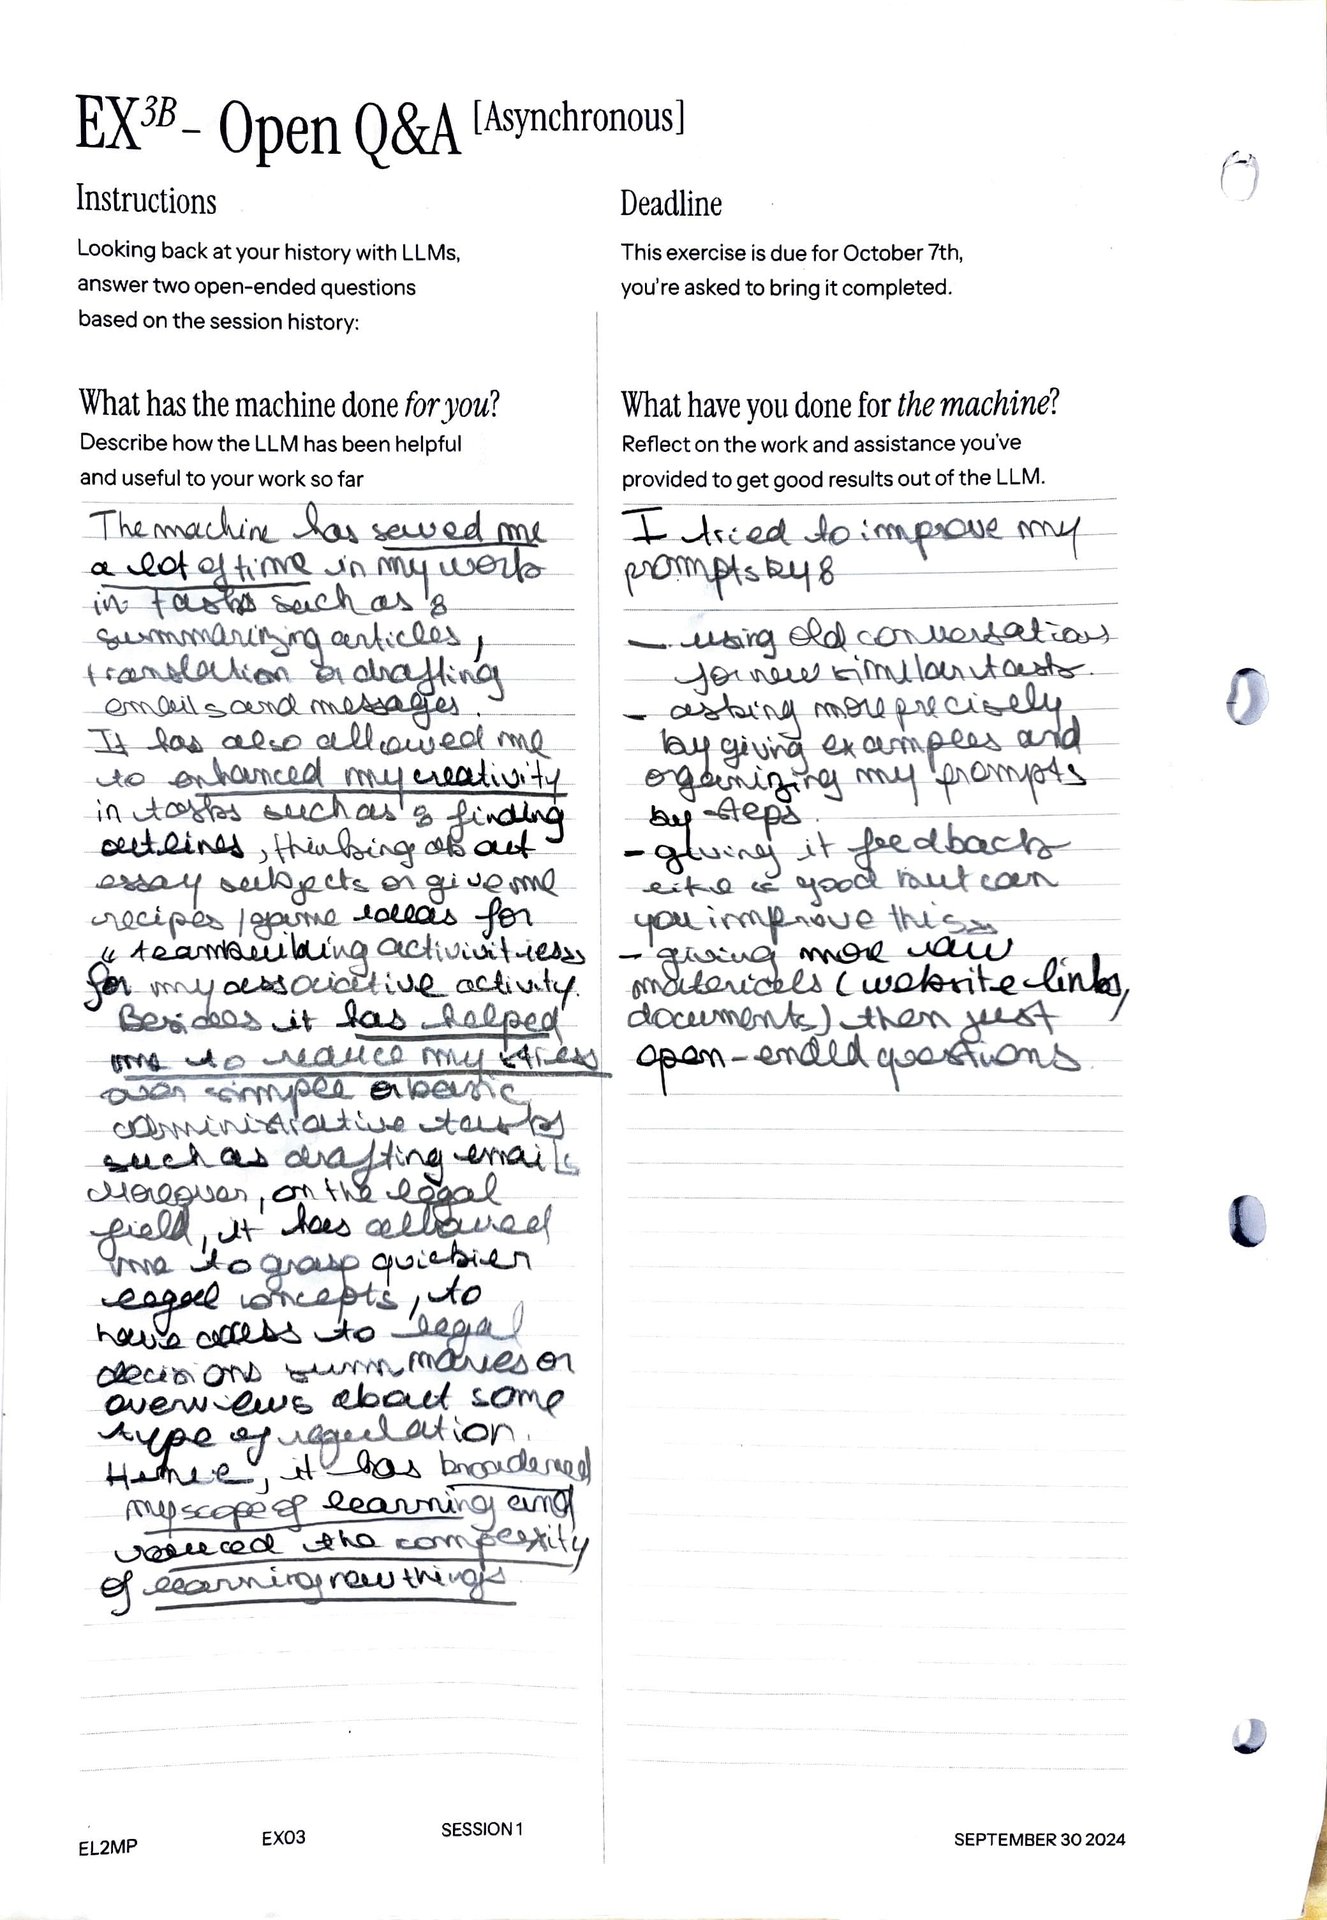 EX3B - Open Q&A [Asynchronous]
Instructions
Looking back at your history with LLMs,
answer two open-ended questions
based on the session history:
Deadline
This exercise is due for October 7th,
you're asked to bring it completed.
What has the machine done for you?
Describe how the LLM has been helpful
and useful to your work so far
The machine has saved me
a lot of time in my work
in tasks such as :
summarizing articles,
translation or drafting
emails and messages.
It has also allowed me
to enhanced my creativity
in tasks such as : finding
outlines, thinking about
essay subjects or give me
recipes / game ideas for
" teambuilding activivities
for my associative activity.
Besides it has helped
me to reduce my stress
over simple basic
administrative tasks
such as drafting emails
Moreover, on the legal
field, it has allowed
me to grasp quickier
legal concepts, to
have access to legal
decisions summaries or
overviews about some
type of regulation.
Hence, it has broadened
my scope of learning and
reduced the complexity
of learning new things.
What have you done for the machine?
Reflect on the work and assistance you've
provided to get good results out of the LLM.
I tried to improve my
prompts by :
- using old conversations
for new similar tasks.
- asking more precisely
by giving examples and
organizing my prompts
by steps.
- giving it feedback
like is good but can
you improve this
- giving more raw
materials (website links,
documents) then just
open-ended questions.
EL2MP
EX03
SESSION 1
SEPTEMBER 30 2024